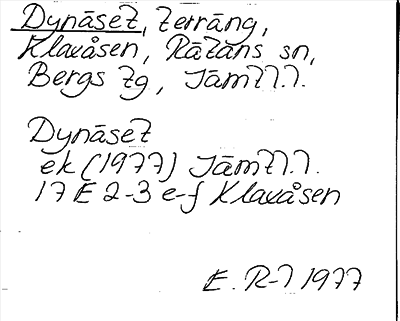 Dynäset, terräng,
Klaxåsen, Rätans sn,
Bergs tg, Jämtl.l.
Dynäset
ek (1977) Jämtl.l.
17 E 2-3 e-f Klaxåsen
E. R-l 1977